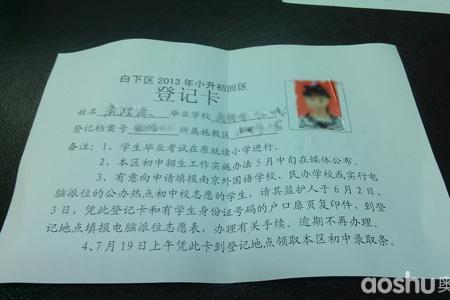 白下区2013年小升初回区
登记卡
姓名 毕业学校
登记档案号 所属施教区
备注：1、学生毕业考试在原就读小学进行。
2、本区初中招生工作实施办法5月中旬在媒体公布。
3、有意向申请填报南京外国语学校、民办学校或实行电
脑派位的公办热点初中校志愿的学生，请其监护人于6月2日、
3日，凭此登记卡和有学生身份证号码的户口扉页复印件，到登
记地点填报电脑派位志愿表，办理有关手续。逾期不再办理。
4、7月19日上午凭此卡到登记地点领取本区初中录取条。
aoshu奥